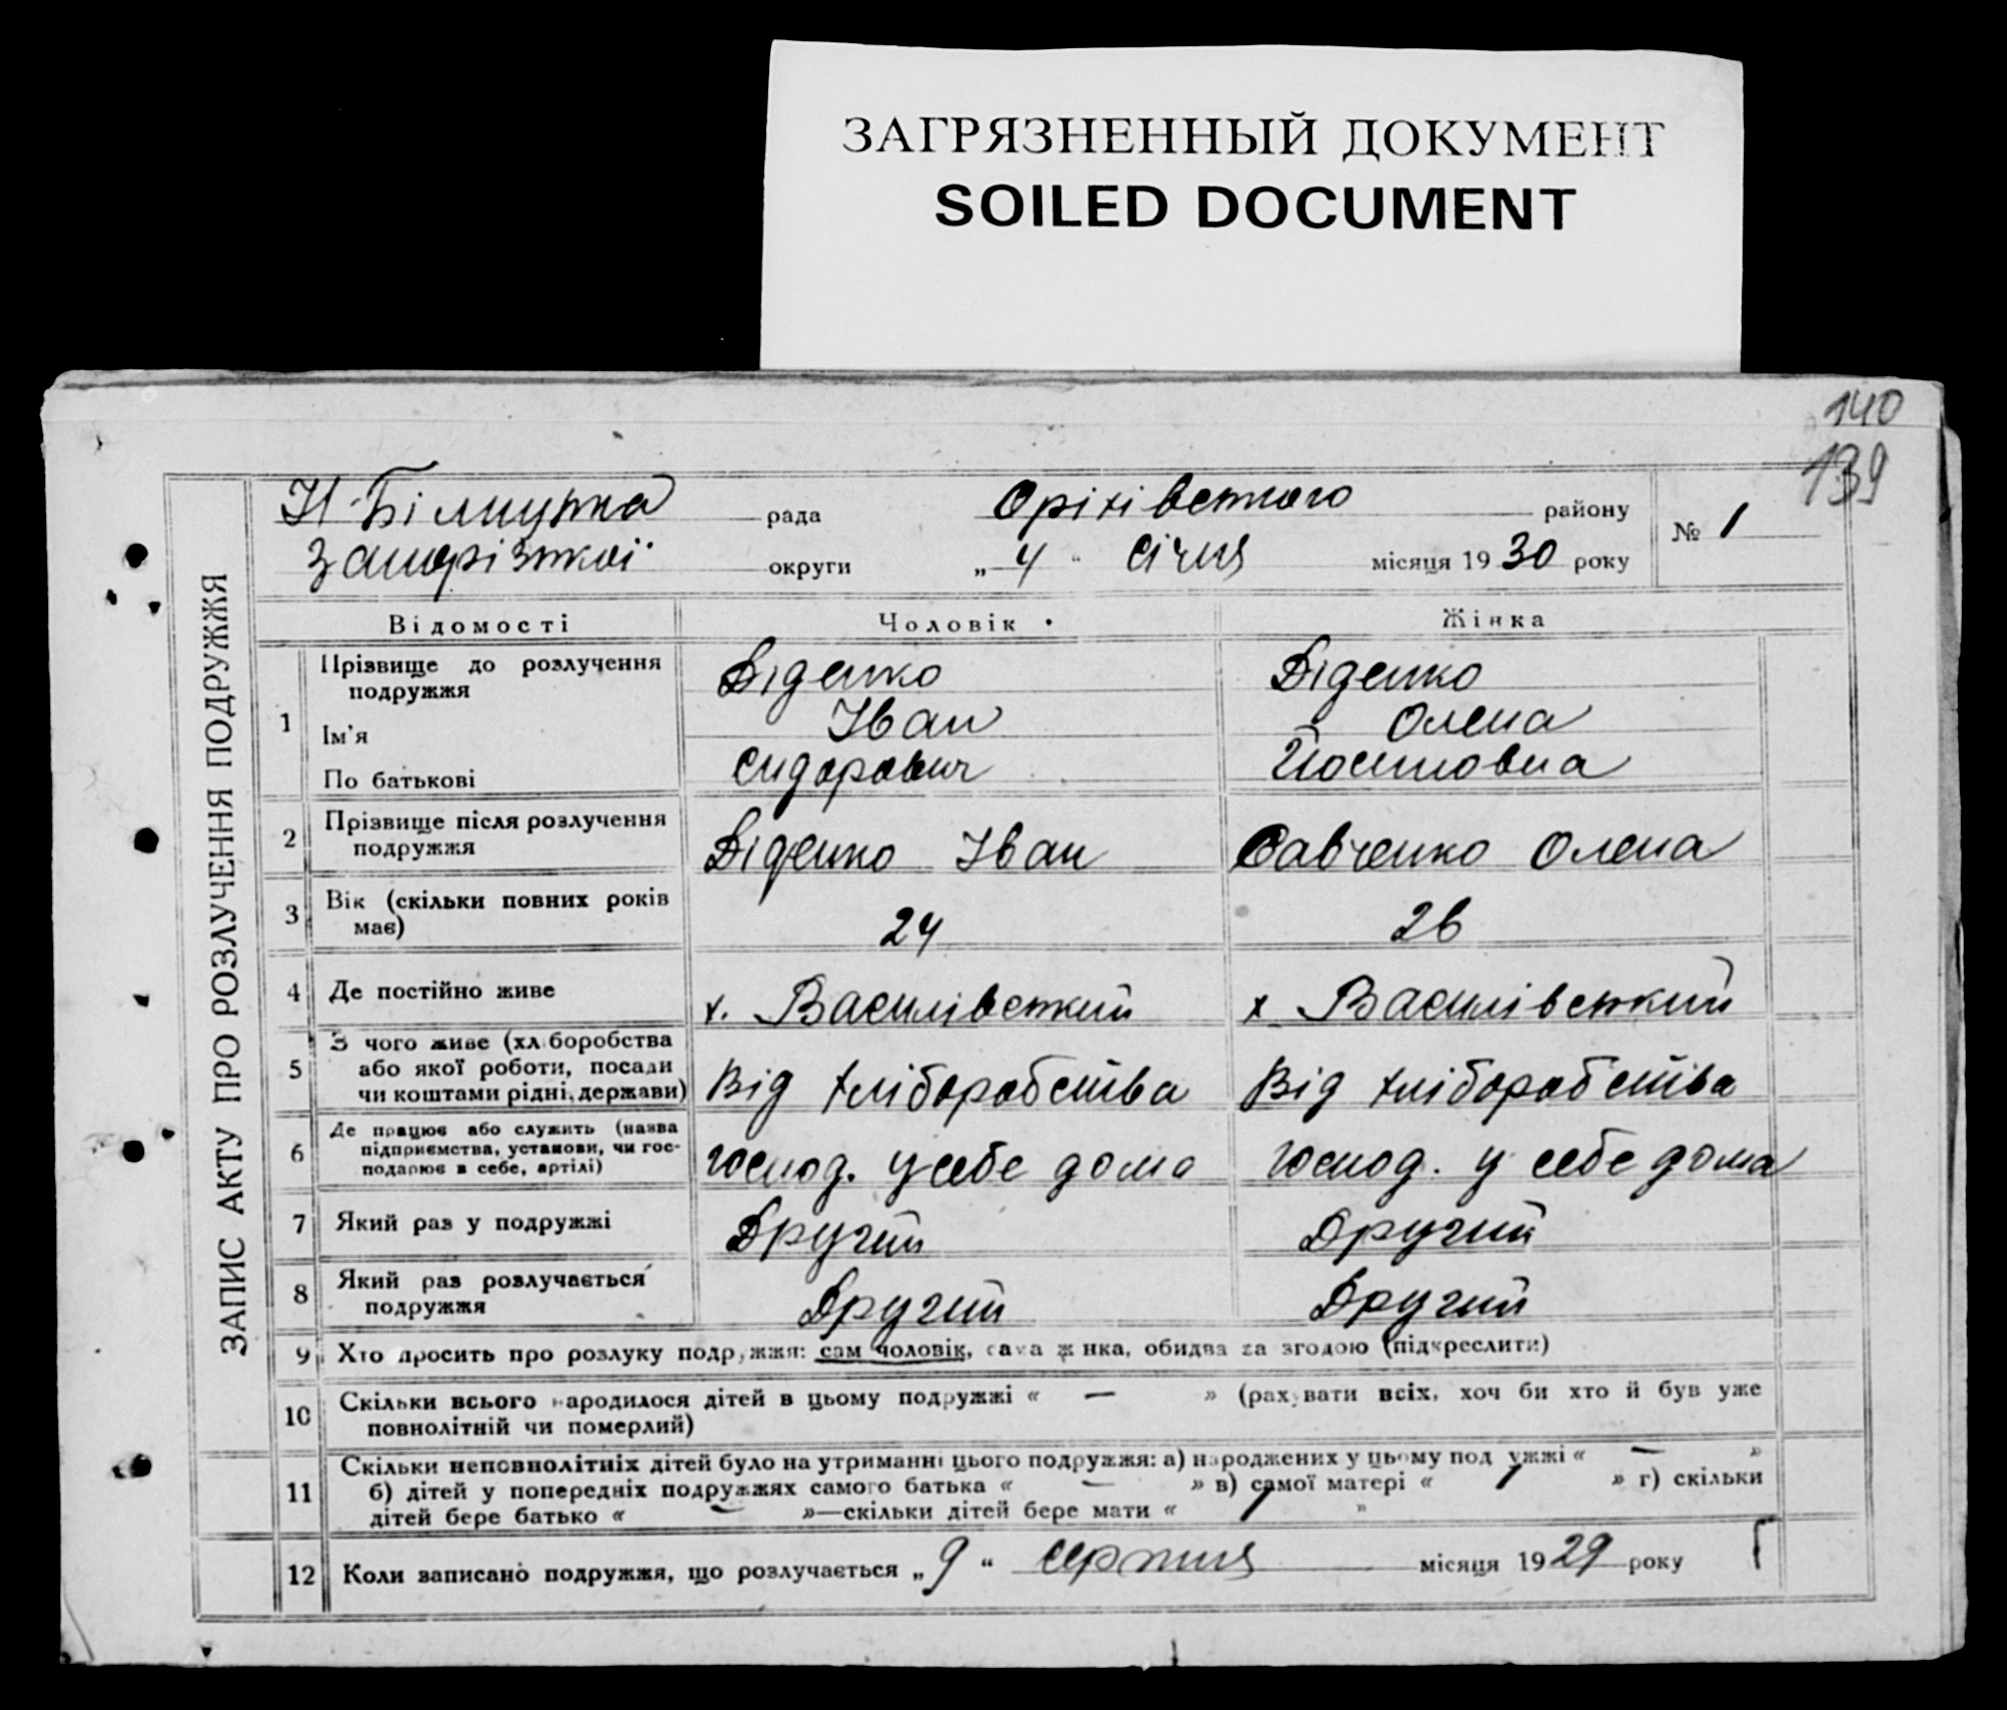 ЗАГРЯЗНЕННЫЙ ДОКУМЕНТ
SOILED DOCUMENT
140
139
ЗАПИС АКТУ ПРО РОЗЛУЧЕННЯ ПОДРУЖЖЯ
рада Оріхівського району № 1
Запорізької округи „4“ Січня місяця 1930 року
Відомості Чоловік Жінка
1 Прізвище до розлучення подружжя Діденко Діденко
Ім'я Іван Олена
По батькові Сидорович Йосиповна
2 Прізвище після розлучення подружжя Діденко Іван Савченко Олена
3 Вік (скільки повних років має) 24 26
4 Де постійно живе х. Василівський х. Василівський
5 З чого живе (хліборобства
або якої роботи, посади
чи коштами рідні, держави) Від хліборобства Від хліборобства
6 Де працює або служить (назва
підприємства, установи, чи гос-
подарює в себе, артілі) господ. у себе дома господ. у себе дома
7 Який раз у подружжі Другий Другий
8 Який раз розлучається подружжя Другий Другий
9 Хто просить про розлуку подружжя: сам чоловік, сама жінка, обидва за згодою (підкреслити)
10 Скільки всього народилося дітей в цьому подружжі « — » (рахувати всіх, хоч би хто й був уже
повнолітній чи померлий)
11 Скільки неповнолітніх дітей було на утриманні цього подружжя: а) народжених у цьому подружжі « — »
б) дітей у попередніх подружжях самого батька « — » в) самої матері « 1 » г) скільки
дітей бере батько « — »—скільки дітей бере мати « 1 »
12 Коли записано подружжя, що розлучається „9“ серпня місяця 1929 року